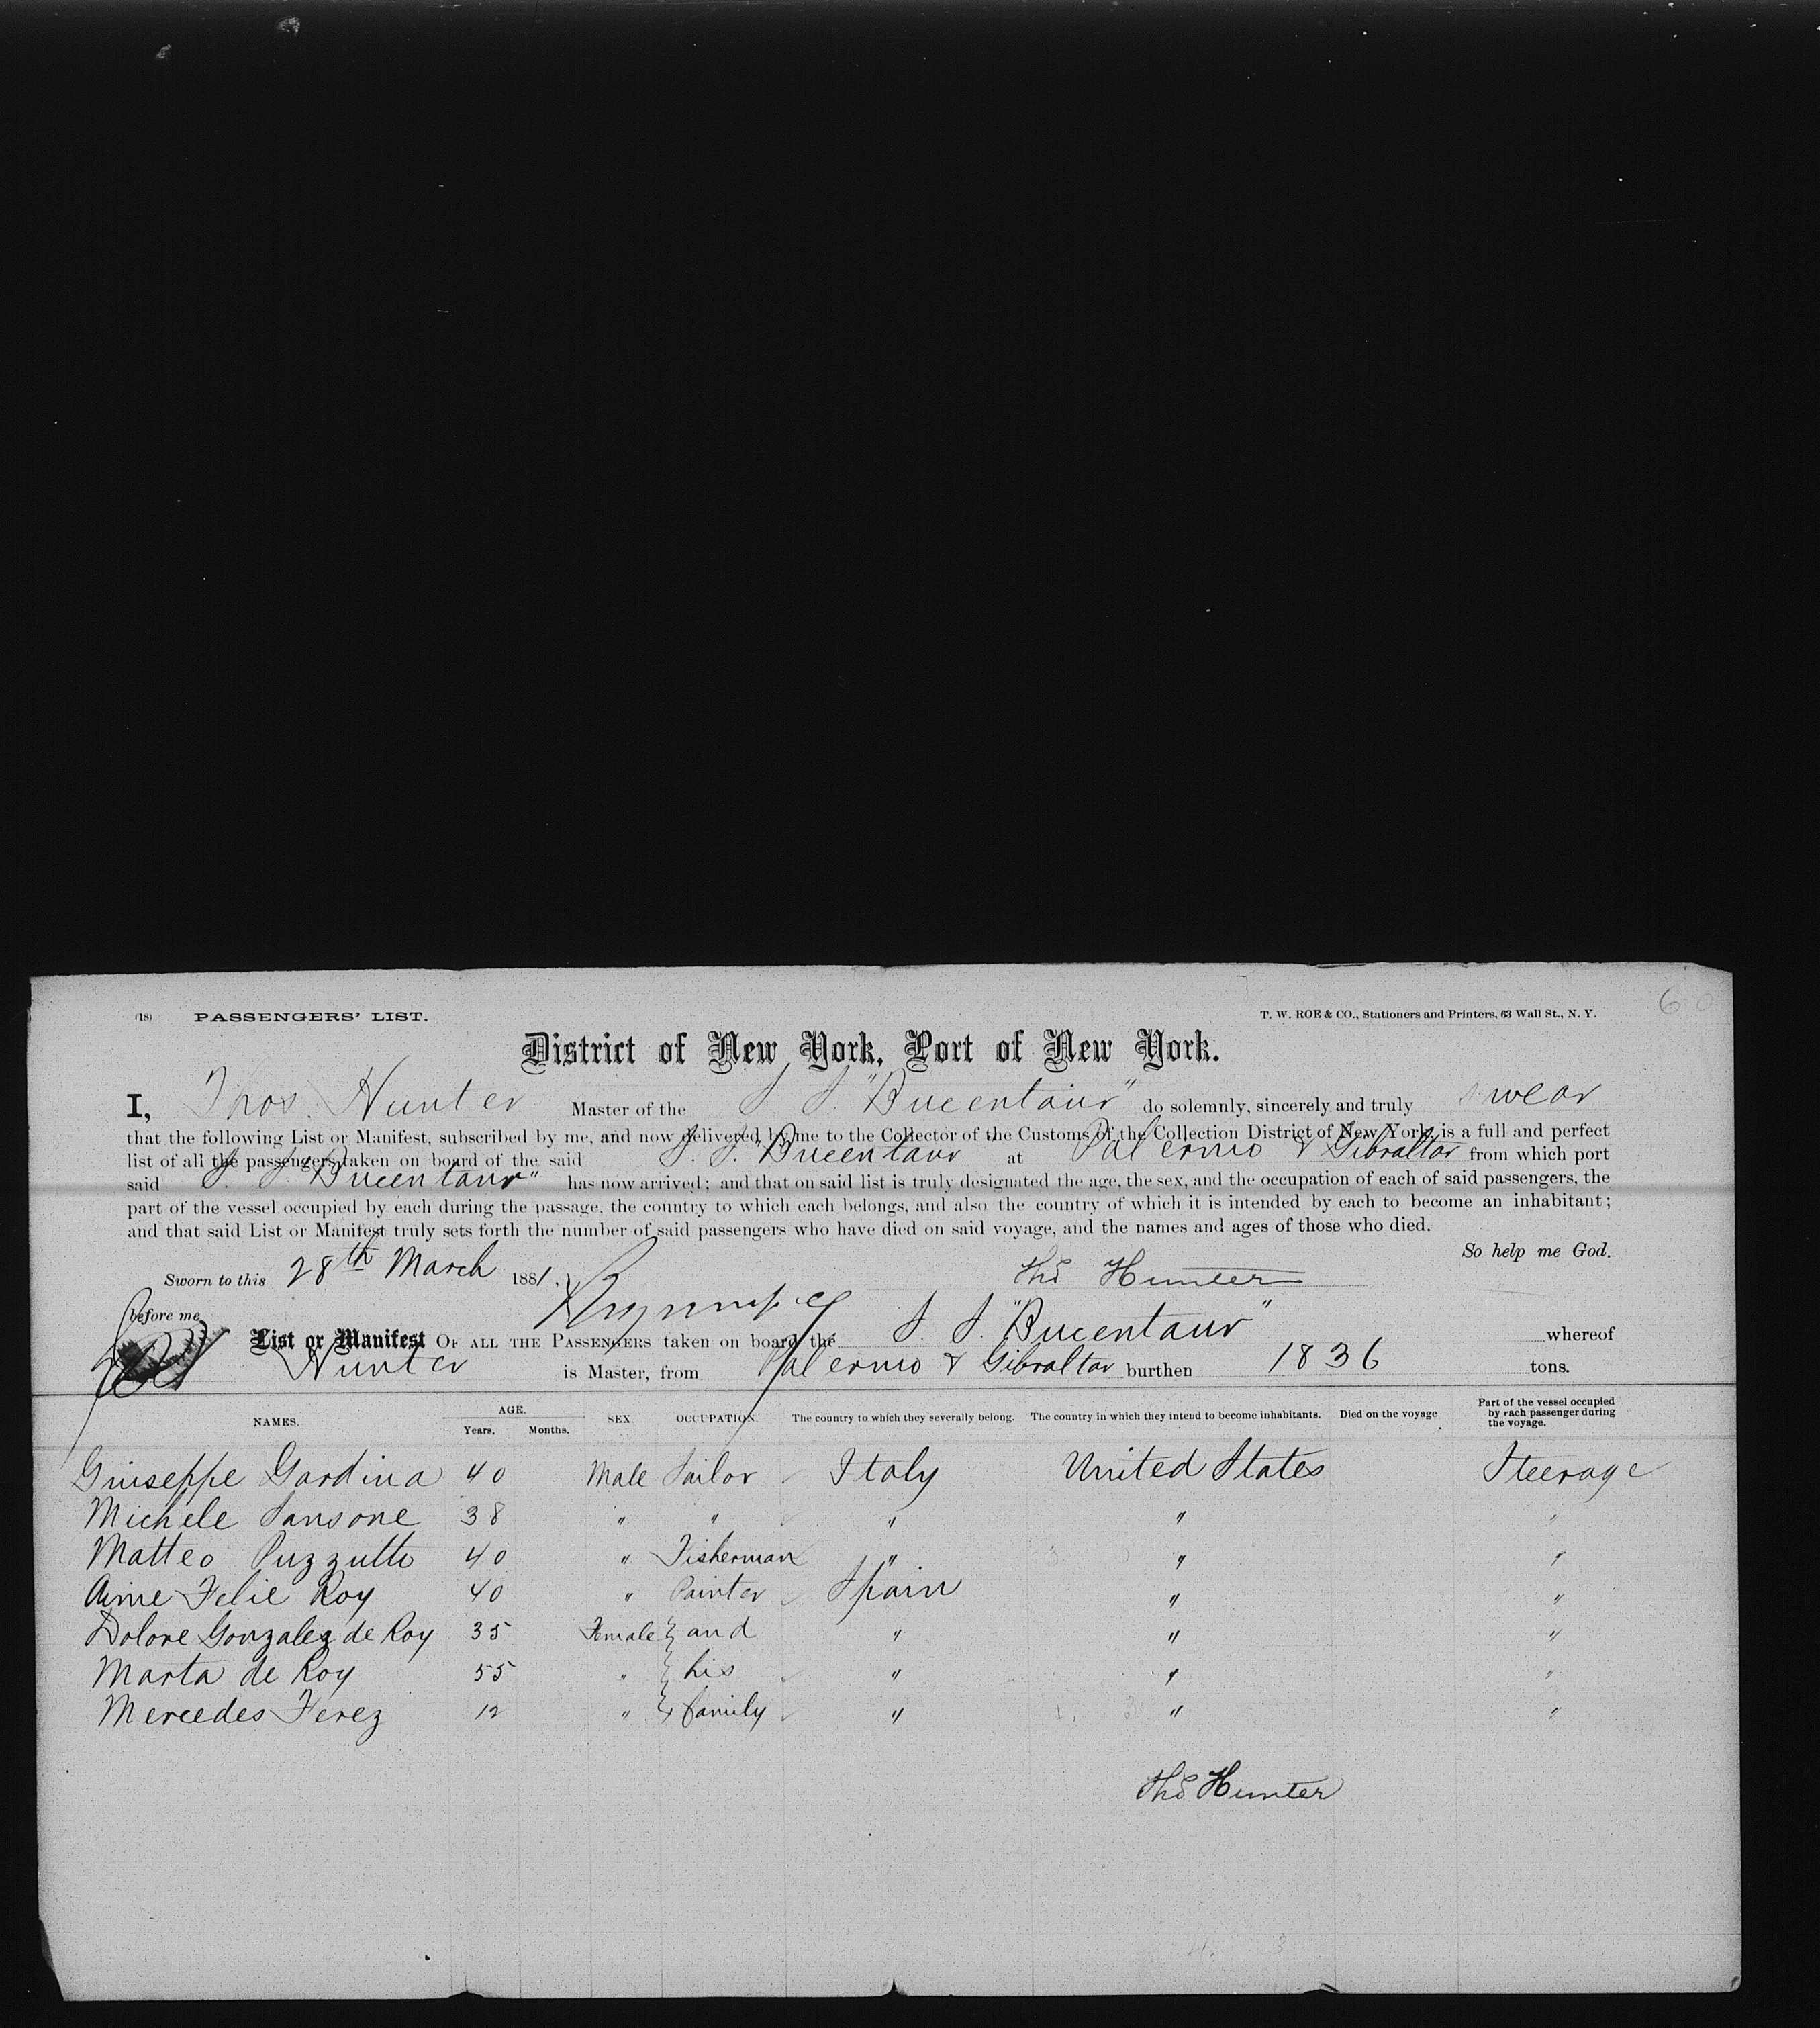 (18) PASSENGERS' LIST. T. W. ROE & CO., Stationers and Printers, 63 Wall St., N. Y.
District of New York, Port of New York.
I, Thos. Hunter Master of the S. S. "Bucentaur" do solemnly, sincerely and truly swear
that the following List or Manifest, subscribed by me, and now delivered by me to the Collector of the Customs of the Collection District of New York, is a full and perfect
list of all the passengers taken on board of the said S. S. "Bucentaur at Palermo & Gibraltar from which port
said S. S. "Bucentaur" has now arrived; and that on said list is truly designated the age, the sex, and the occupation of each of said passengers, the
part of the vessel occupied by each during the passage, the country to which each belongs, and also the country of which it is intended by each to become an inhabitant;
and that said List or Manifest truly sets forth the number of said passengers who have died on said voyage, and the names and ages of those who died.
So help me God.
Sworn to this 28th March 1881, Thos Hunter
before me
List or Manifest OF ALL THE PASSENGERS taken on board the S. S. "Bucentaur" whereof
Hunter is Master, from Palermo & Gibraltar burthen 1836 tons.
NAMES. AGE. Years. Months. SEX. OCCUPATION. The country to which they severally belong. The country in which they intend to become inhabitants. Died on the voyage. Part of the vessel occupied by each passenger during the voyage.
Giuseppe Gardina 40 Male Sailor Italy United States Steerage
Michele Sansone 38 " " " " "
Matteo Puzzutto 40 " Fisherman " " "
Aime Felie Roy 40 " Painter Spain " "
Dolore Gonzalez de Roy 35 Female } and " " "
Marta de Roy 55 " } his " " "
Mercedes Ferez 12 " } family " " "
Thos Hunter